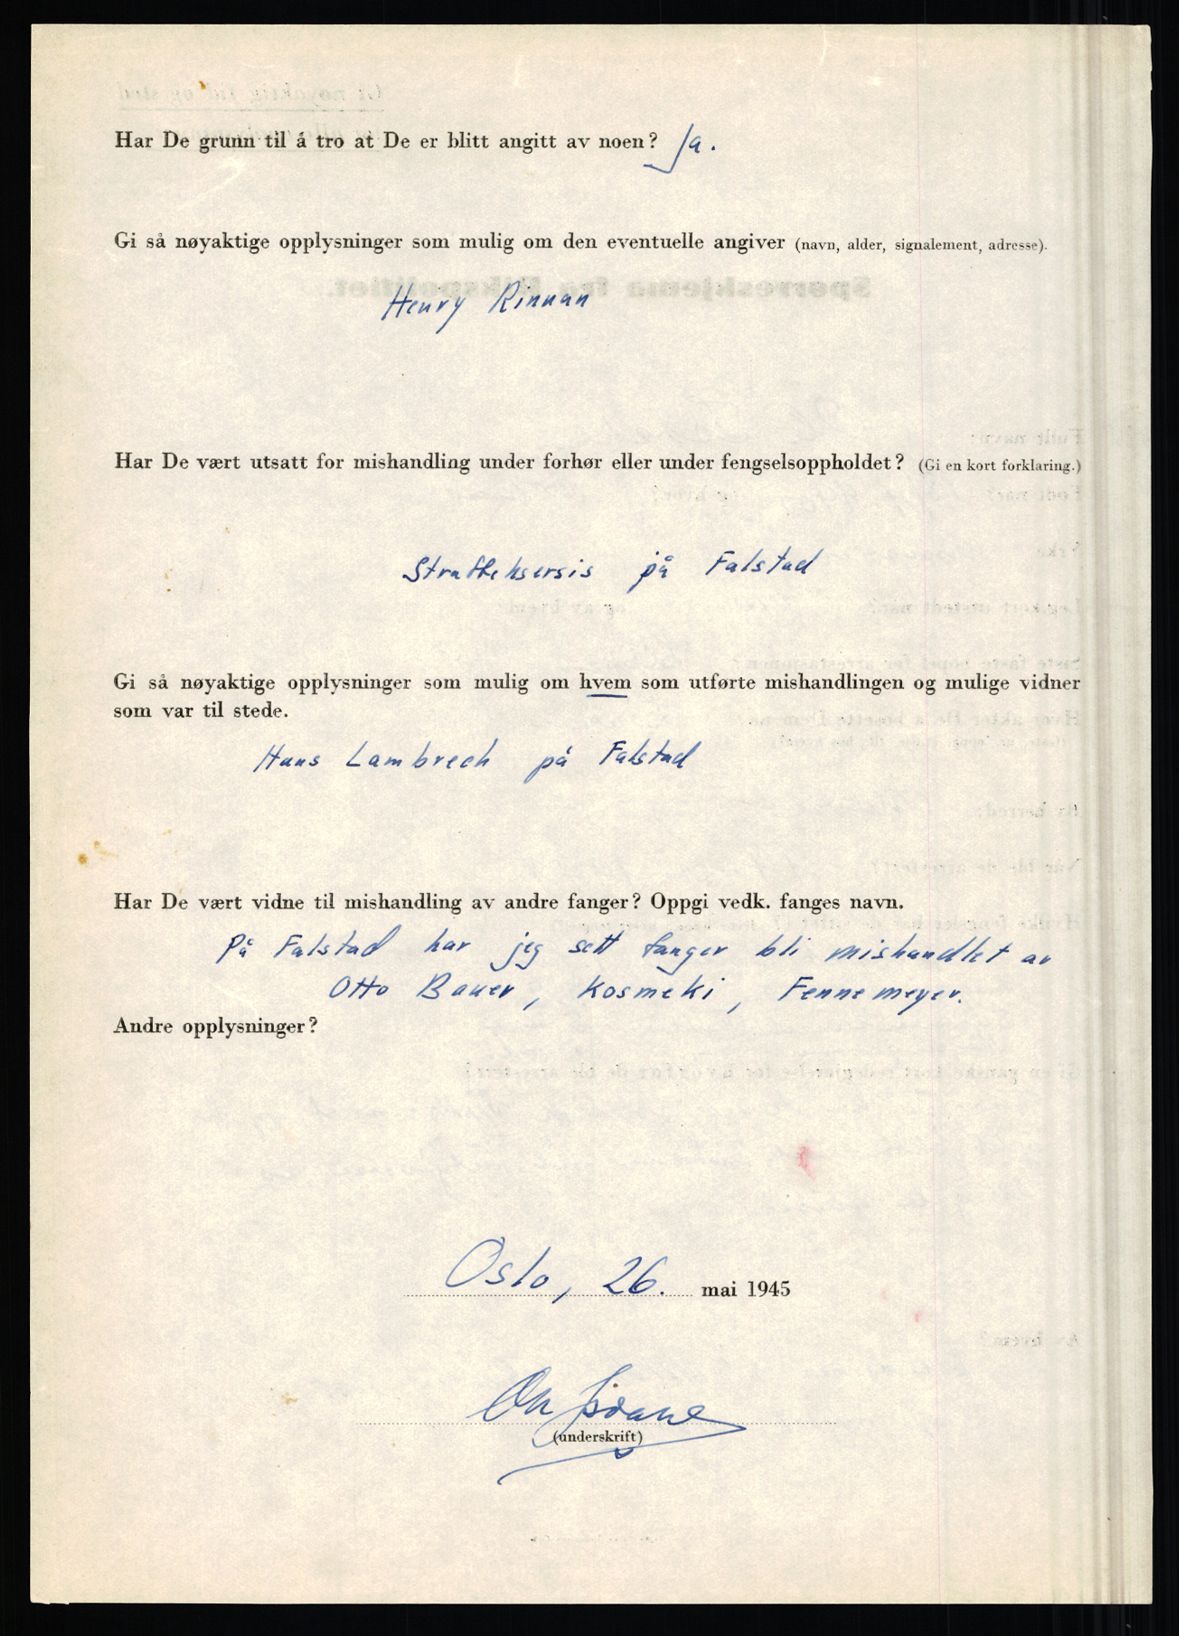 Har De grunn til å tro at De er blitt angitt av noen? Ja.
Gi så nøyaktige opplysninger som mulig om den eventuelle angiver (navn, alder, signalement, adresse).
Henry Rinnan
Har De vært utsatt for mishandling under forhør eller under fengselsoppholdet? (Gi en kort forklaring.)
Straffeksersis på Falstad
Gi så nøyaktige opplysninger som mulig om hvem som utførte mishandlingen og mulige vidner
som var til stede.
Hans Lambrech på Falstad
Har De vært vidne til mishandling av andre fanger? Oppgi vedk. fanges navn.
På Falstad har jeg sett fanger bli mishandlet av
Otto Bauer, Kosmeki, Fennemeyer.
Andre opplysninger?
Oslo, 26. mai 1945
(underskrift)